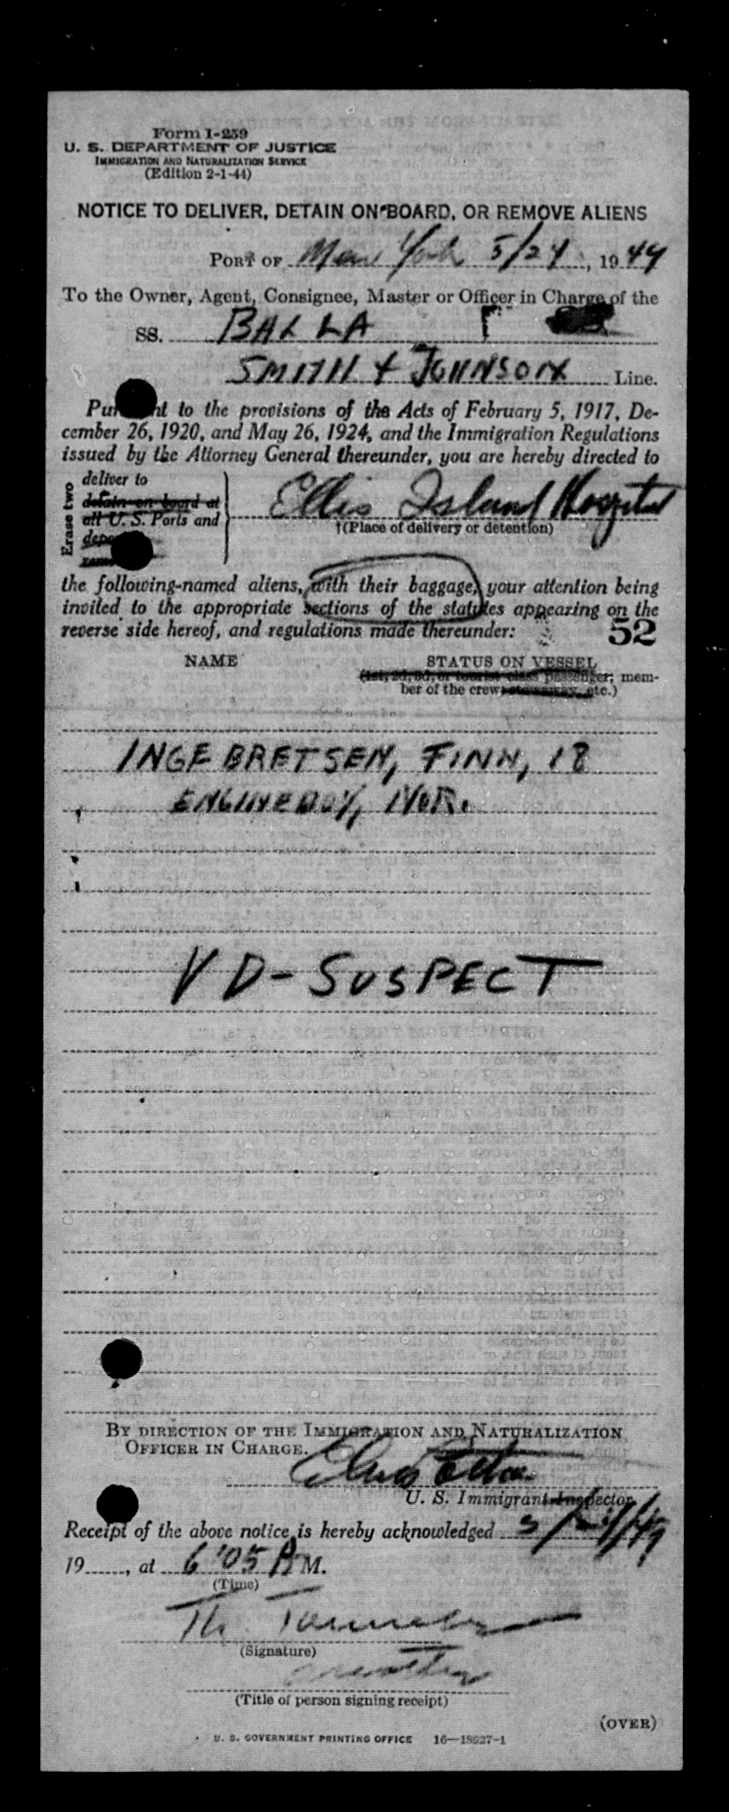 Form I-259
U. S. DEPARTMENT OF JUSTICE
IMMIGRATION AND NATURALIZATION SERVICE
(Edition 2-1-44)
NOTICE TO DELIVER, DETAIN ON BOARD, OR REMOVE ALIENS
PORT OF New York 5/24, 1949
To the Owner, Agent, Consignee, Master or Officer in Charge of the
SS. BALLA
SMITH & JOHNSON Line.
Pursuant to the provisions of the Acts of February 5, 1917, De-
cember 26, 1920, and May 26, 1924, and the Immigration Regulations
issued by the Attorney General thereunder, you are hereby directed to
Erase two
deliver to
detain on board at
all U. S. Ports and
Ellis Island Hospital
†(Place of delivery or detention)
the following-named aliens, with their baggage, your attention being
invited to the appropriate sections of the statutes appearing on the
reverse side hereof, and regulations made thereunder:
52
NAME STATUS ON VESSEL
(1st, 2d, 3d, or tourist class passenger; mem-
ber of the crew, stowaway, etc.)
INGEBRETSEN, FINN, 18
ENGINEBOY, NOR.
VD-SUSPECT
BY DIRECTION OF THE IMMIGRATION AND NATURALIZATION
OFFICER IN CHARGE.
U. S. Immigrant Inspector
Receipt of the above notice is hereby acknowledged 5/24/49
19......, at 6:05 P.M.
(Time)
Th.
(Signature)
(Title of person signing receipt)
(OVER)
U. S. GOVERNMENT PRINTING OFFICE 16—18927-1